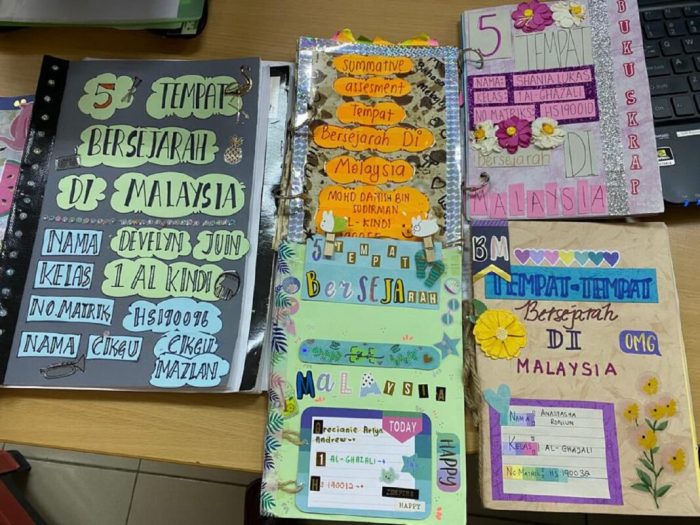 5 TEMPAT
BERSEJARAH
DI MALAYSIA
NAMA DEVELYN JUIN
KELAS 1 AL KINDI
NO.MATRIK HS190096
NAMA CIKGU CIKGU
MAZLAN
Summative
assesment
Tempat
Bersejarah Di
Malaysia
MOHD DANISH BIN
SUDIRMAN
L-KINDI
5 TEMPAT
BERSEJARAH
MALAYSIA
TODAY
Grecianie Arlyn
Andrew
1 AL-GHAZALI
HS 190012
HAPPY
HAPPY
5 TEMPAT
NAMA: SHANIA LUKAS
KELAS: 1 AL-GHAZALI
NO MATRIKS: HS190010
Bersejarah DI
MALAYSIA
BUKU SKRAP
BM
TEMPAT-TEMPAT
Bersejarah
DI
OMG
MALAYSIA
Nama: ANASTASHA
ROMIUN
Kelas: 1 AL-GHAZALI
No Matrik: HS190030